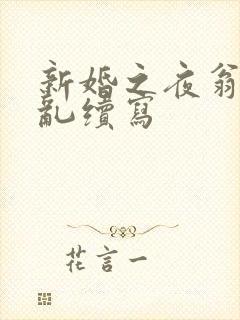 新婚之夜翁
亂續寫
花言一